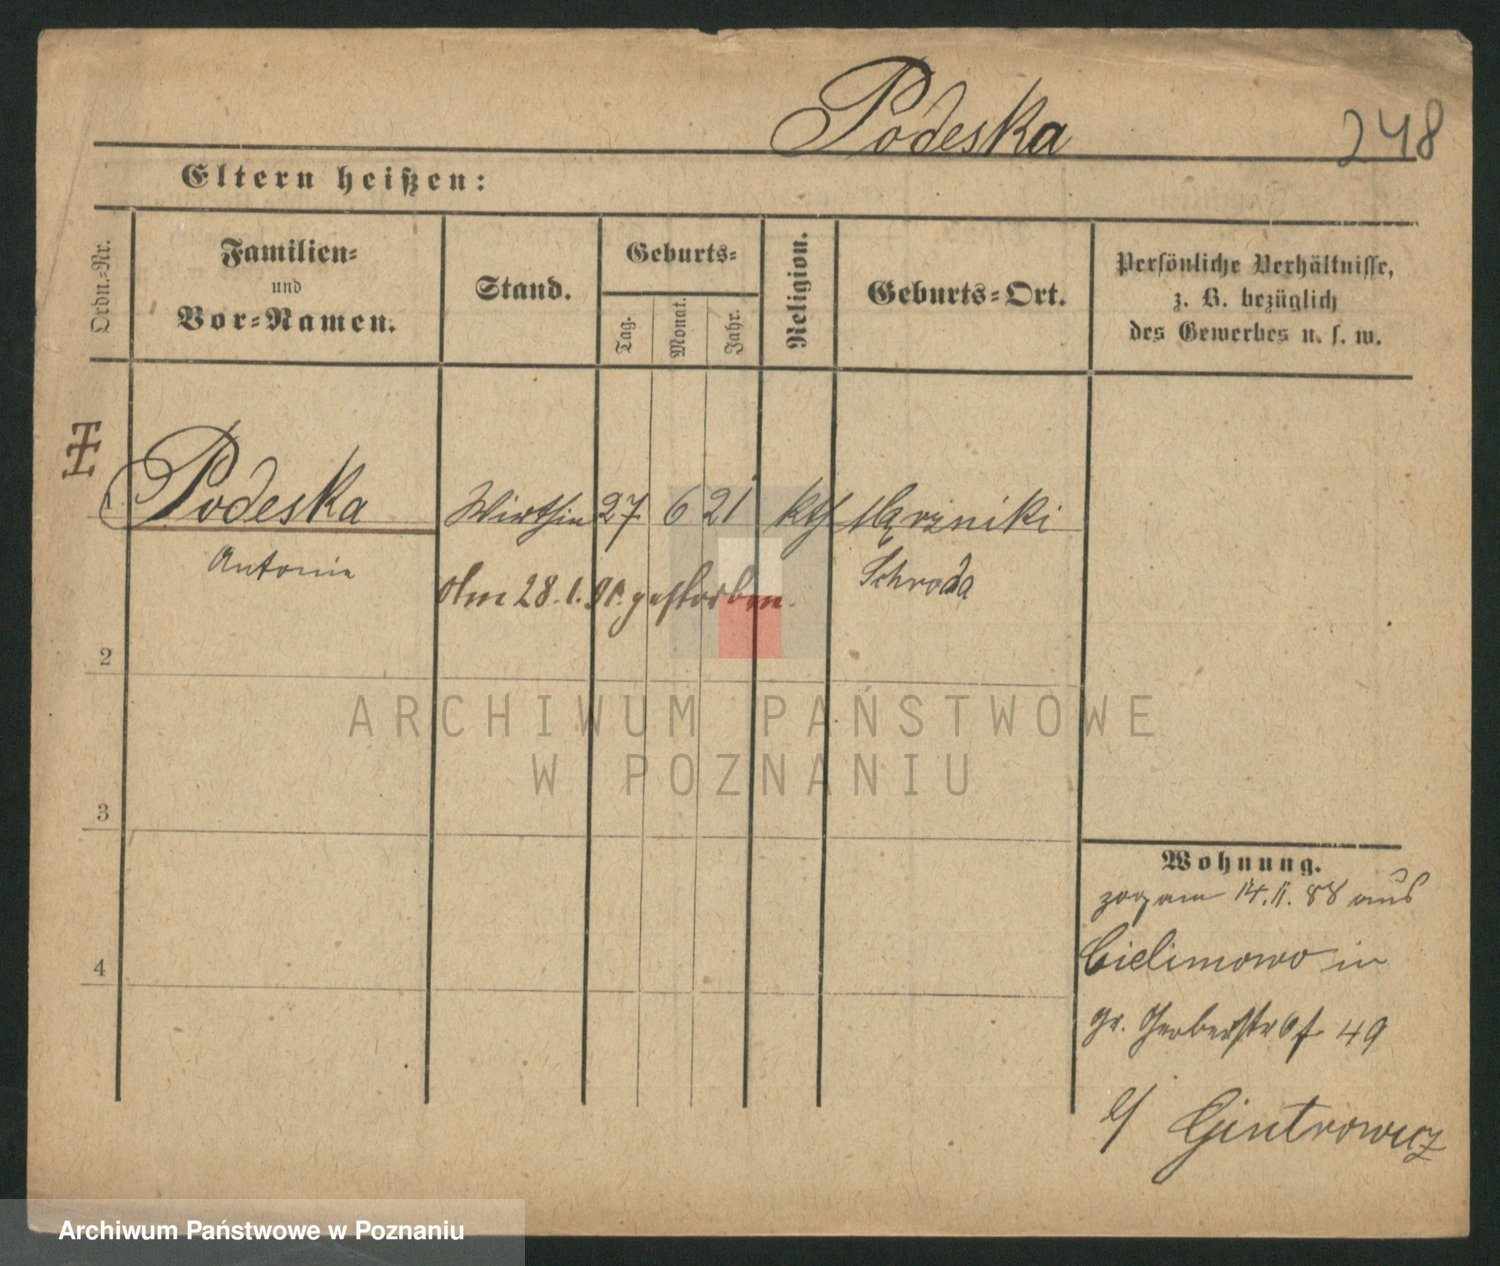 Podeska 248
Eltern heißen:
Ordn.-Nr.
Familien-
und
Vor-Namen.
Stand.
Geburts-
Tag.
Monat.
Jahr.
Religion.
Geburts-Ort.
Persönliche Verhältnisse,
z. B. bezüglich
des Gewerbes u. s. w.
1 Podeska Wirthin 27 6 21 kth
Antonie Schroda
Am 28.1. gestorben.
2
3
4
Wohnung.
zog am 14.11.88 aus
Cielimowo in
gr. Gerberstr 49
b/ Gintrowicz
ARCHIWUM PAŃSTWOWE
W POZNANIU
Archiwum Państwowe w Poznaniu